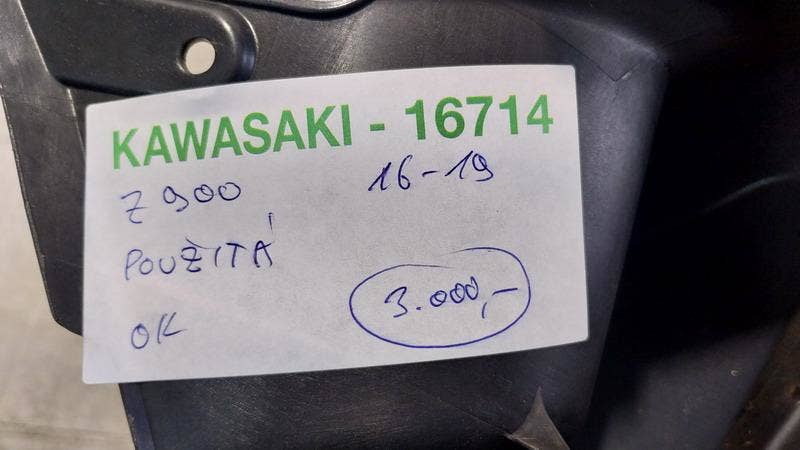 KAWASAKI - 16714
Z 900 16-19
POUŽITÁ
OK 3.000,-